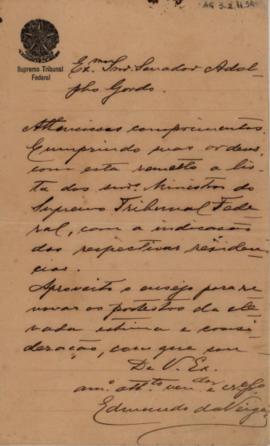 Supremo Tribunal
Federal
Ex.mo Snr. Senador Adol-
pho Gordo.
Attenciosos comprimentos.
Cumprindo suas ordens,
com esta remetto a lis-
ta dos snrs. Ministros do
Supremo Tribunal Fede-
ral, com a indicação
das respectivas residen-
cias.
Aproveito o ensejo para re-
novar os protestos da ele-
vada estima e consi-
deração, com que sou
De V. Ex.
am.º att.to ven.dor e
Edmundo da Veiga